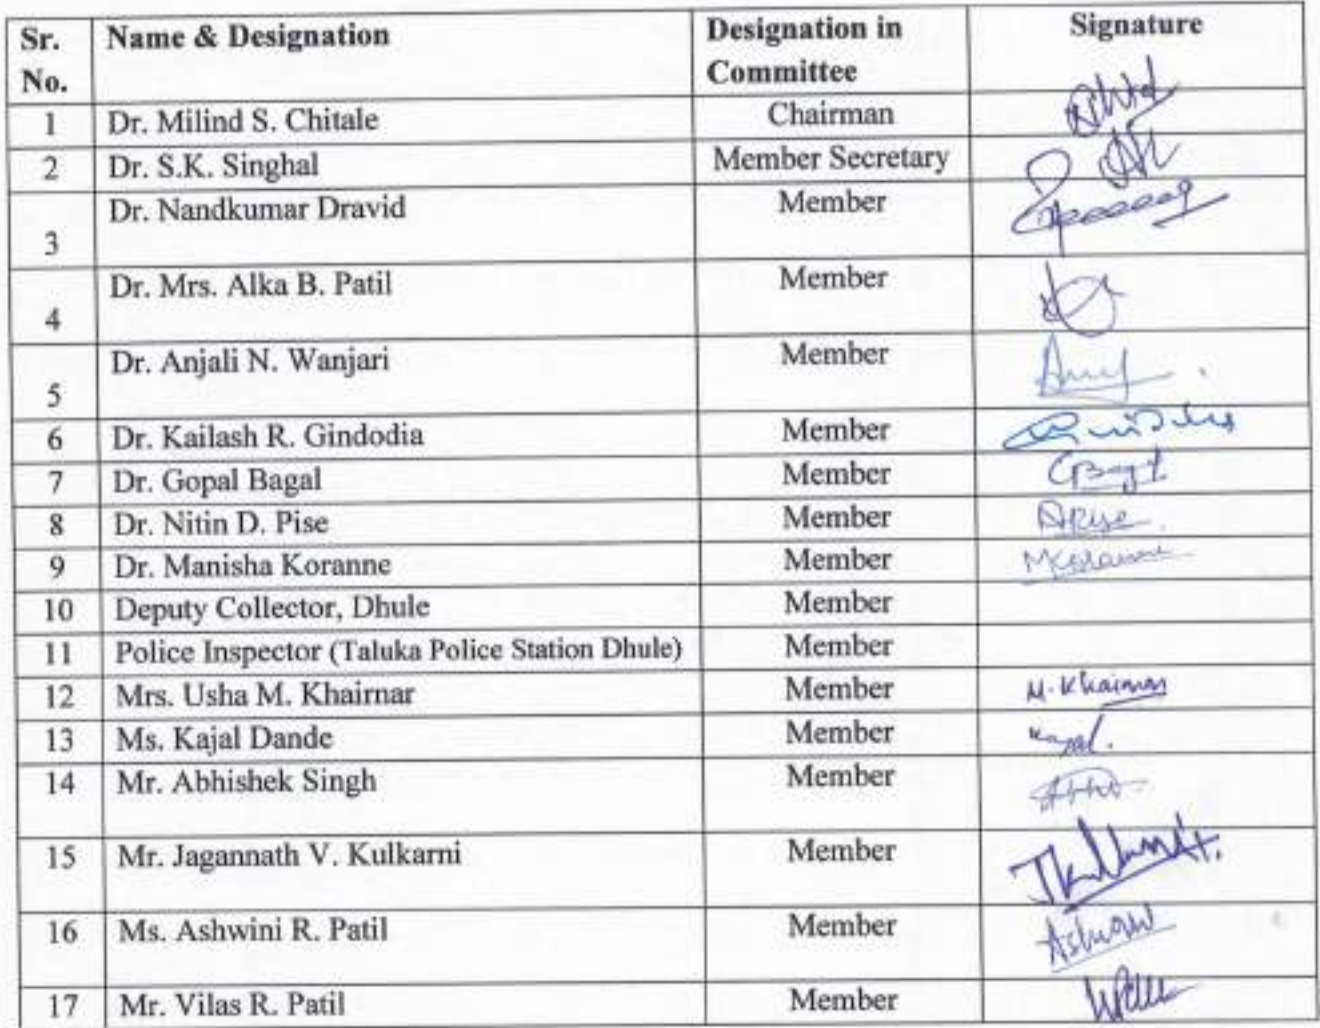 Sr. No. Name & Designation Designation in Committee Signature
1 Dr. Milind S. Chitale Chairman
2 Dr. S.K. Singhal Member Secretary
3 Dr. Nandkumar Dravid Member
4 Dr. Mrs. Alka B. Patil Member
5 Dr. Anjali N. Wanjari Member
6 Dr. Kailash R. Gindodia Member
7 Dr. Gopal Bagal Member
8 Dr. Nitin D. Pise Member
9 Dr. Manisha Koranne Member
10 Deputy Collector, Dhule Member
11 Police Inspector (Taluka Police Station Dhule) Member
12 Mrs. Usha M. Khairnar Member M. Khairnar
13 Ms. Kajal Dande Member Kajal.
14 Mr. Abhishek Singh Member
15 Mr. Jagannath V. Kulkarni Member
16 Ms. Ashwini R. Patil Member
17 Mr. Vilas R. Patil Member